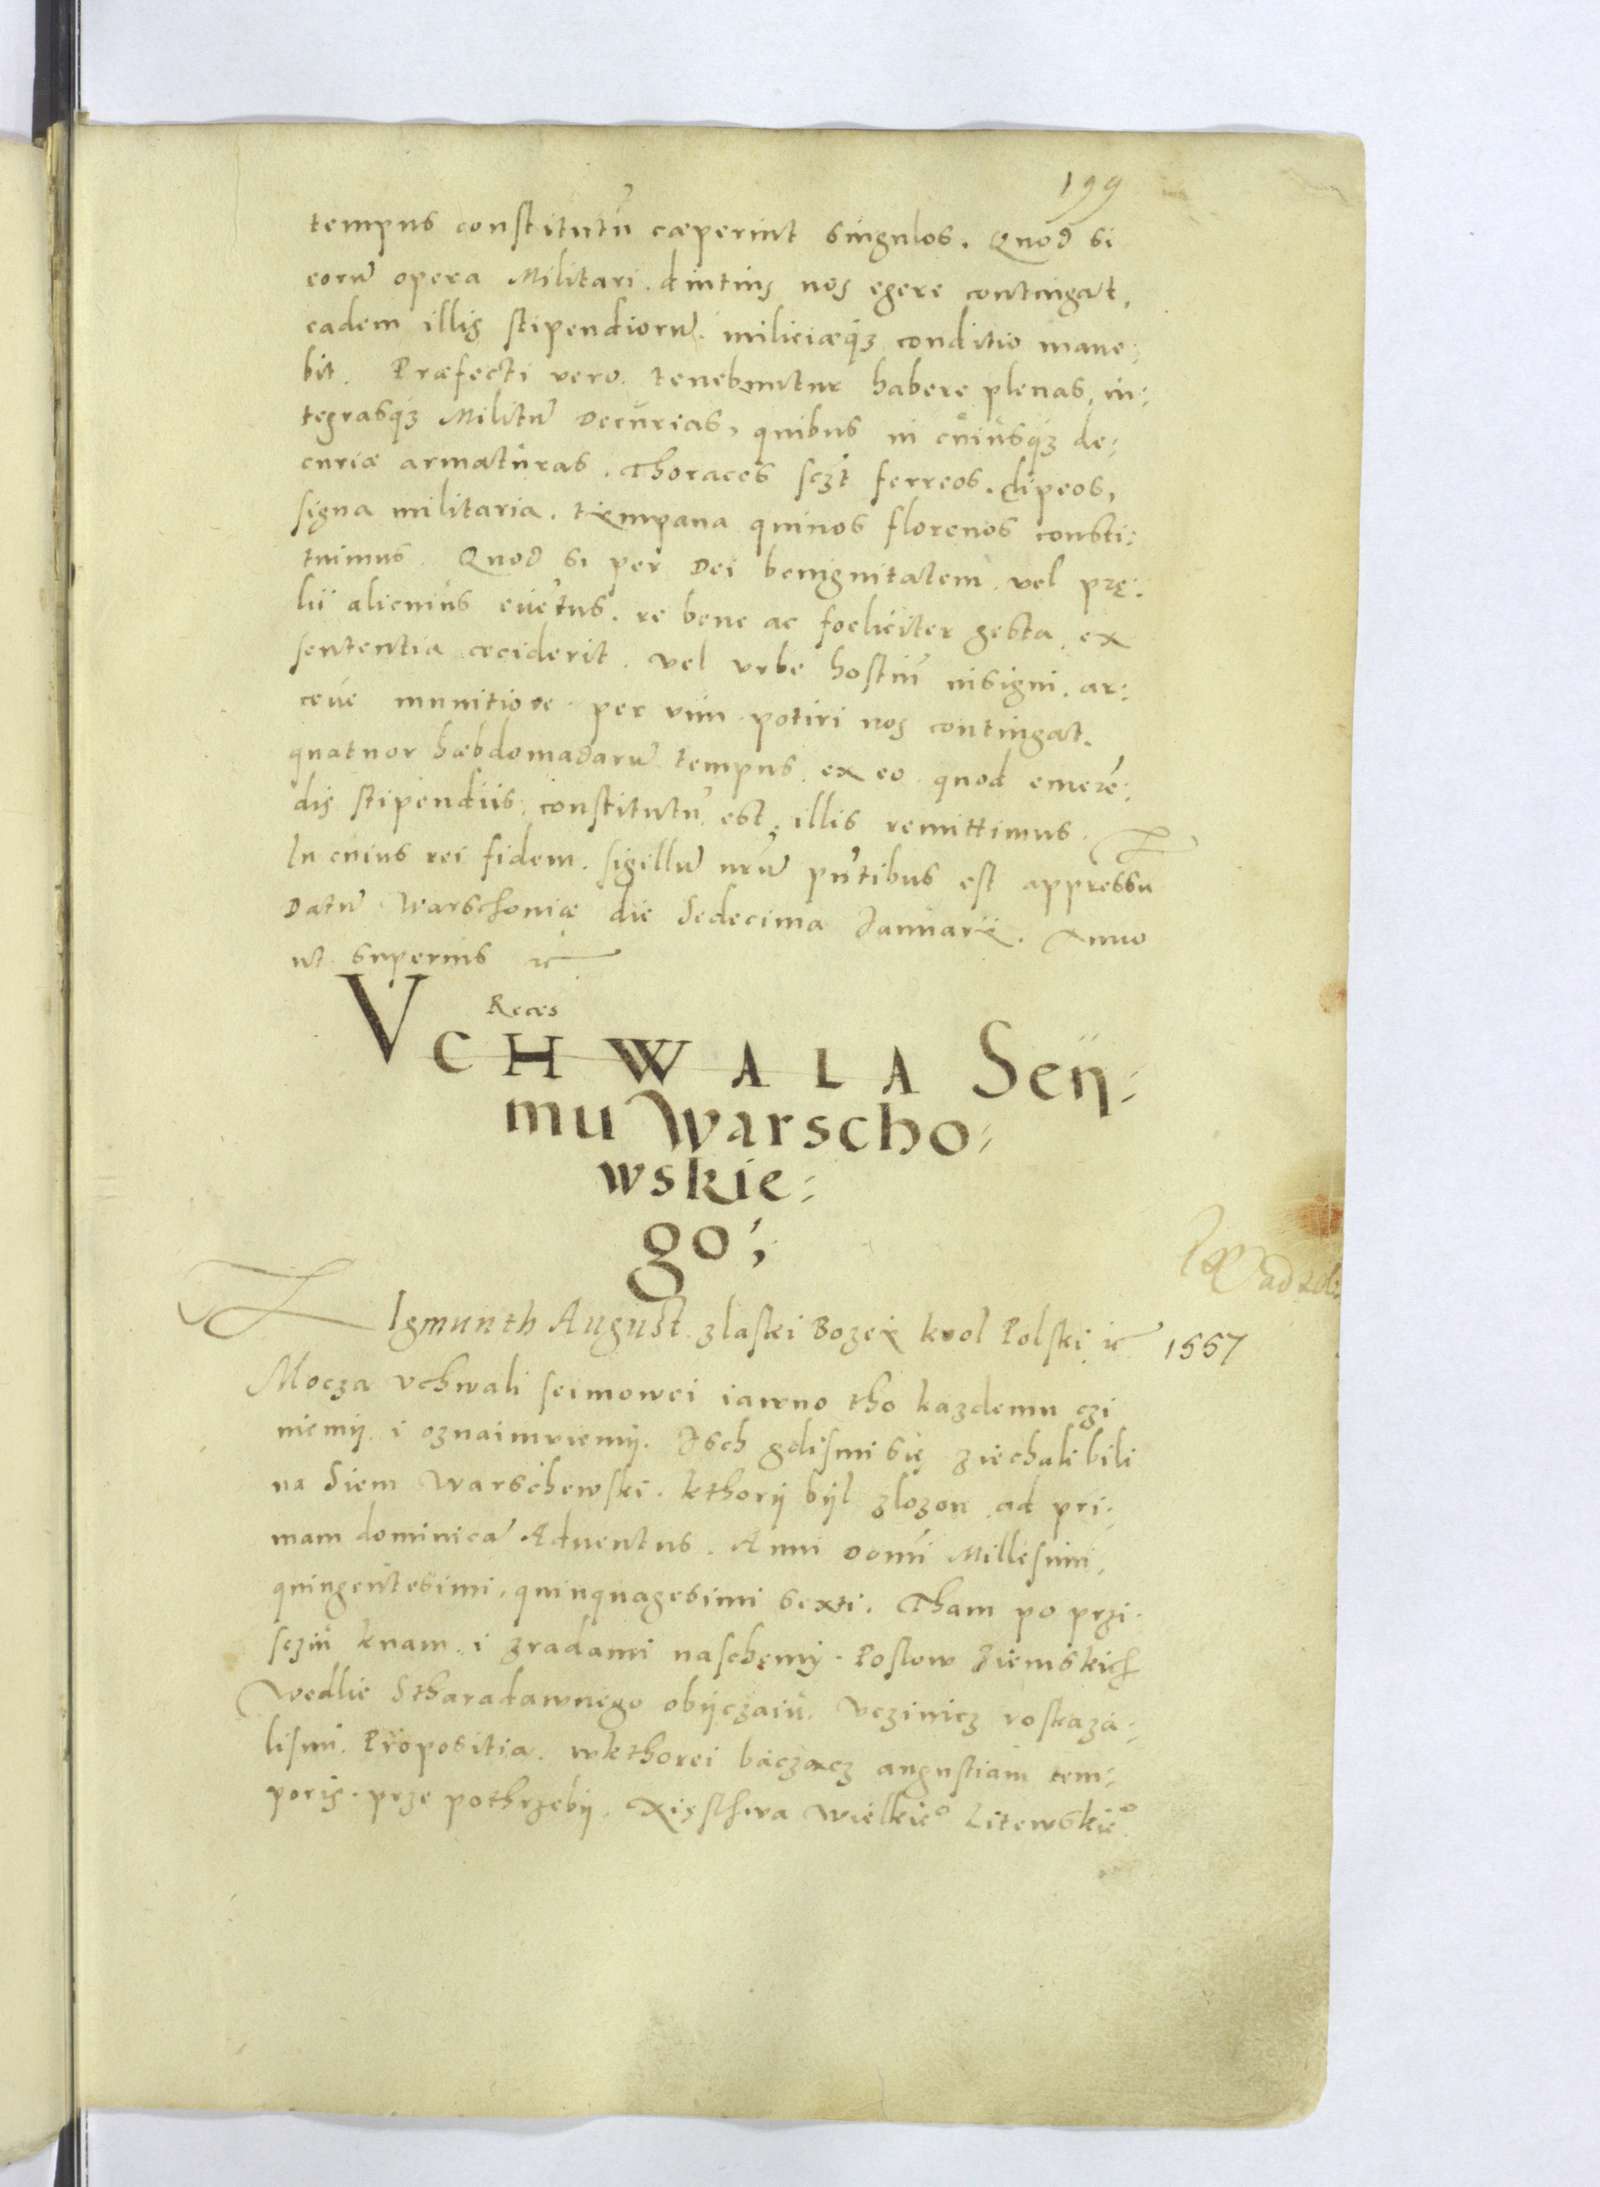 199
tempus constitutū cæperint singulos. Quod si
eorū opera Militari. diutius nos egere contingat,
eadem illis stipendiorū. miliciæqȝ conditio mane:
bit. Præfecti vero. tenebuntur habere plenas, in:
tegrasqȝ Militū Decurias, quibus in cuiusqȝ de:
curiæ armaturas. Thoraces sczt ferreos. clipeos,
signa militaria. tympana quinos florenos consti:
tuimus. Quod si per Dei benignitatem, vel prę:
lii alicuius evētus. re bene ac foeliciter gesta, ex
sententia ceciderit. vel vrbe hostiū insigni. ar:
ceue munitiore per vim potiri nos contingat.
quatuor hæbdomadarū tempus. ex eo quod emerē:
dis stipendiis. constitutū est, illis remittimus.
In cuius rei fidem. sigillū nrū pntibus est appressu
Datū Warschoniæ die Sedecima Januarii. Anno
ut superius ⁊c
Reces
VCHWALA Seij:
mu Warscho:
wskie:
go;
ad
Igmunth August. zlaski Bozeÿ krol Polski ⁊c 1557
Mocza vchwali seimowei iawno tho kazdemu czi
niemÿ. i oznaimuiemÿ. Isch gdismi się ziechali bili
na Siem Warschewski. kthorÿ bÿl zlozon ad pri:
mam dominicā Adventus. Anni domi Millesimi,
quingentesimi, quinquagesimi sexti. Tham po przi:
sciu knam. i zradami naschęmÿ. Poslow Ziemskich
Wedlie Stharadawnego obÿczaiu. Vczinicz roskaza:
lismi. Propositia. wkthorei bacząncz angustiam tem:
poris. prze pothrzebÿ. Xięsthwa Wielkiē° Litewskiē°